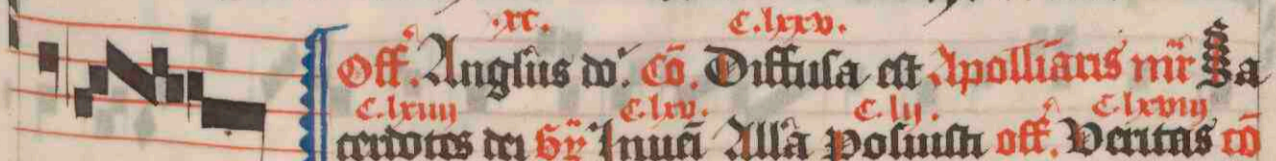 .xc. C.lxxv.
Off. Anglus do. Cō. Diffusa est Apollīaris mr̄ Sa
C.lxiiii C.lxv. C.lij. C.lxviij
cerdotes dei Gr̄ Inueī Allā Posuisti off. Veritas cō